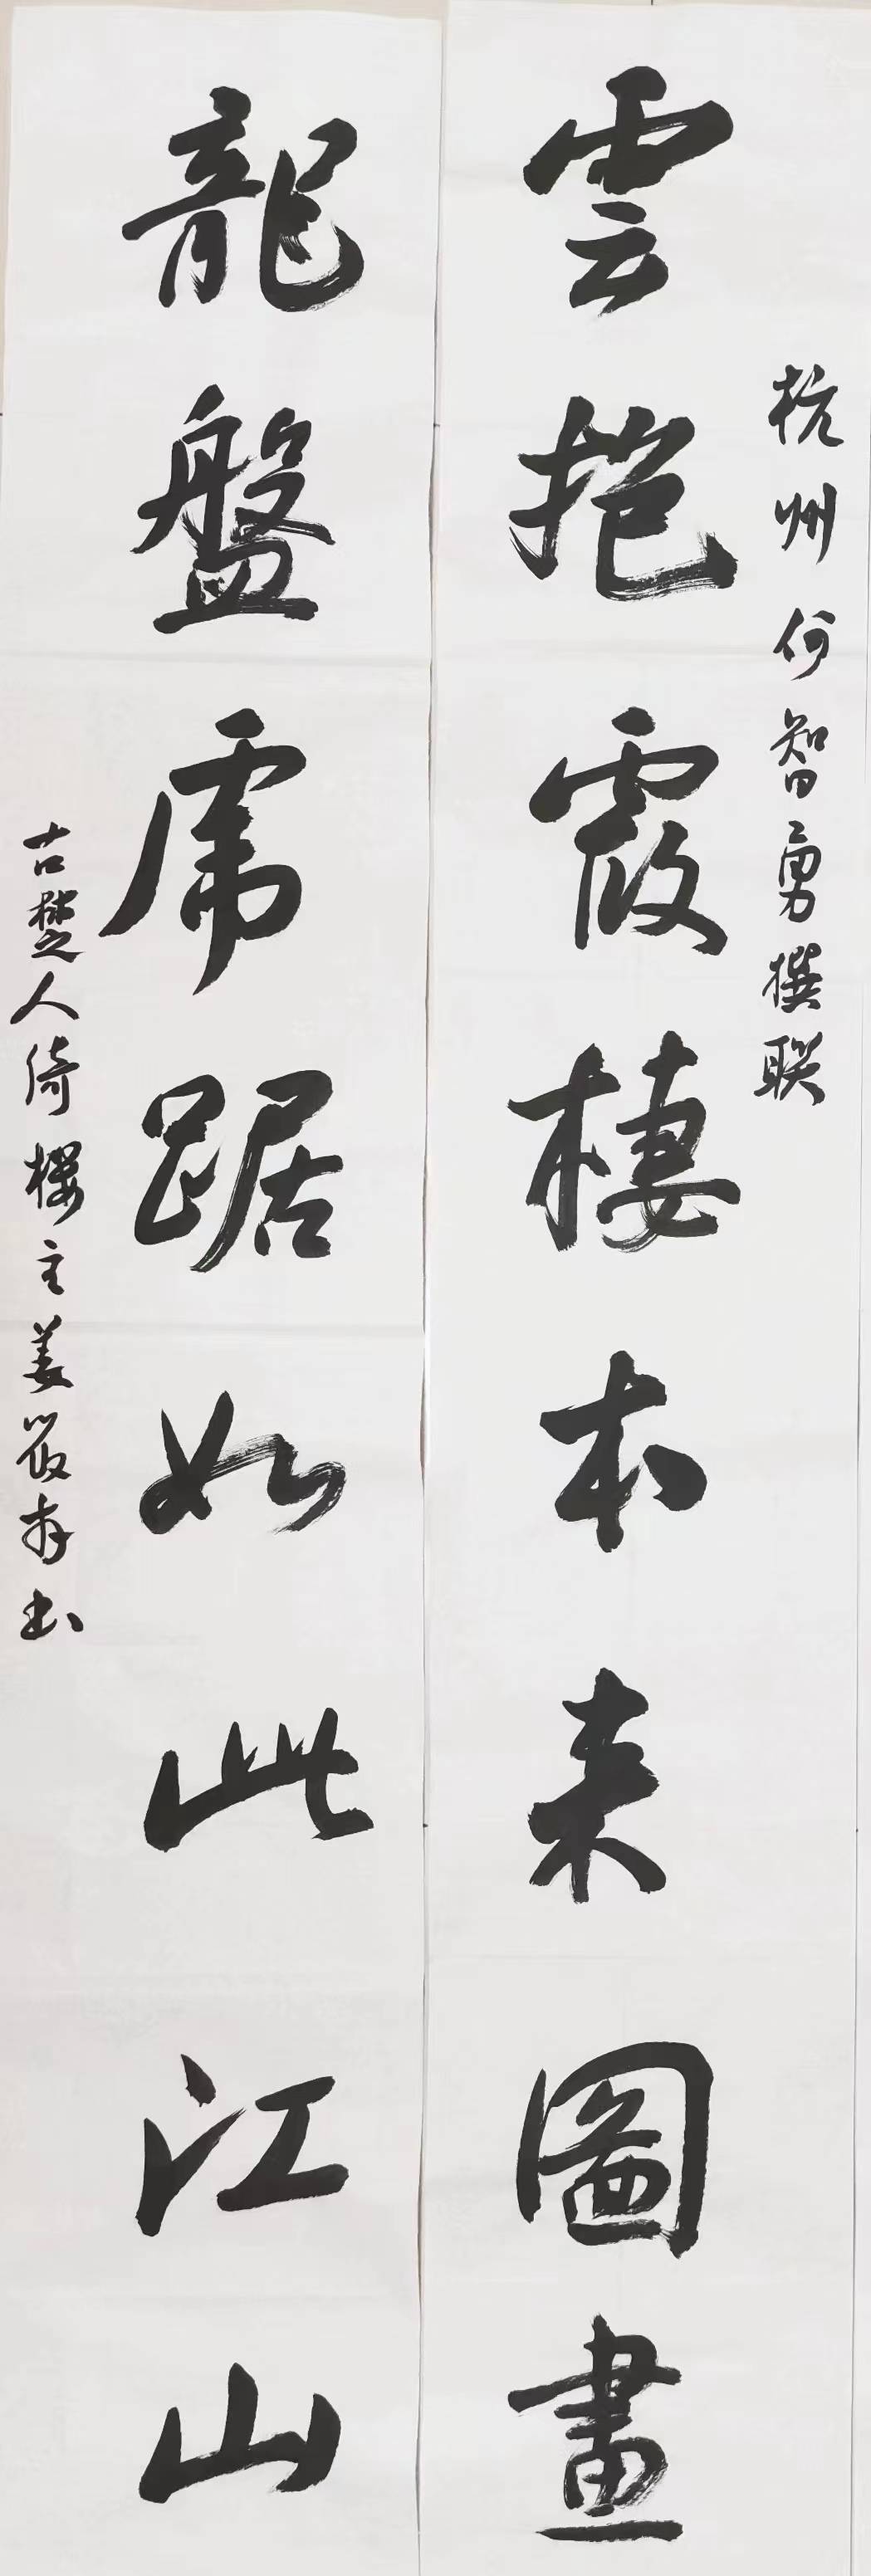 杭州何智勇撰联
雲抱霞棲本来圖畫
龍盤虎踞如此江山
古楚人倚樓主姜書